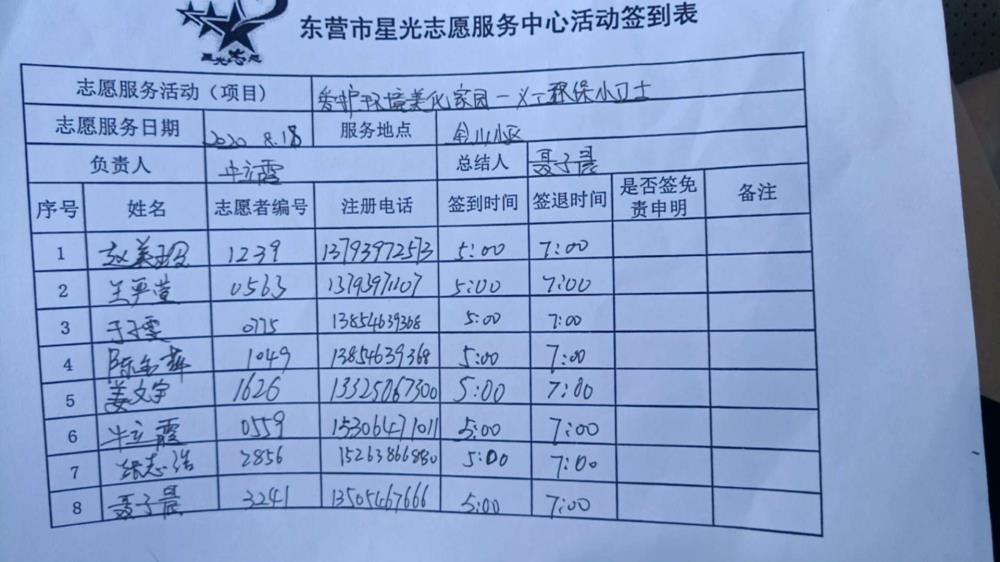 星光志愿
东营市星光志愿服务中心活动签到表
志愿服务活动（项目） 爱护环境美化家园一义工环保小卫士
志愿服务日期 2020 8.18 服务地点 金川小区
负责人 牛立霞 总结人 聂子晨
序号 姓名 志愿者编号 注册电话 签到时间 签退时间 是否签免责申明 备注
1 赵美 1239 13793972573 5:00 7:00
2 王平萱 0563 13793971107 5:00 7:00
3 于子雯 0775 13854639368 5:00 7:00
4 陈 1049 13854639368 5:00 7:00
5 姜文宇 1626 13325067300 5:00 7:00
6 牛立霞 0559 15306471011 5:00 7:00
7 张志浩 2856 15263866880 5:00 7:00
8 聂子晨 3241 13505467666 5:00 7:00